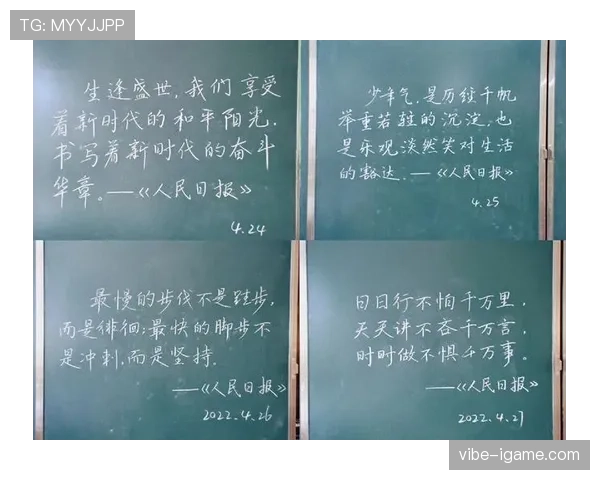 TG: MYYJJPP
生逢盛世,我们享受
着新时代的和平阳光,
书写着新时代的奋斗
华章。——《人民日报》
4.24
少年气,是历经千帆
举重若轻的沉淀,也
是乐观淡然笑对生活
的豁达.——《人民日报》
4.25
最慢的步伐不是跬步,
而是徘徊;最快的脚步不
是冲刺,而是坚持.
——《人民日报》
2022.4.26
日日行不怕千万里,
天天讲不吝千万言,
时时做不惧千万事。
——《人民日报》
2022.4.27
vibe-igame.com